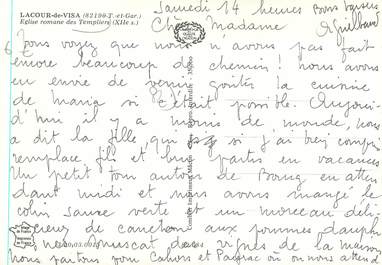 LACOUR-de-VISA (82190-T.-et-Gar.)
Eglise romane des Templiers (XIIe s.)
Samedi 14 heures
Chère Madame
Vous voyez que nous n'avons pas fait
encore beaucoup de chemin! nous avons
eu envie de venir goûter la cuisine
de Maria si c'était possible. Aujour-
d'hui il y a moins de monde, nous
a dit la fille, qui si j'ai bien compris
remplace fils et partis en vacances
Un petit tour autour de Bourg en atten
dant midi et nous avons mangé le
colin sauce verte et un morceau déli
cieux de caneton aux pommes dauphi
nes, muscat des vignes de la maison
Nous partons pour Cahors et où on nous attend